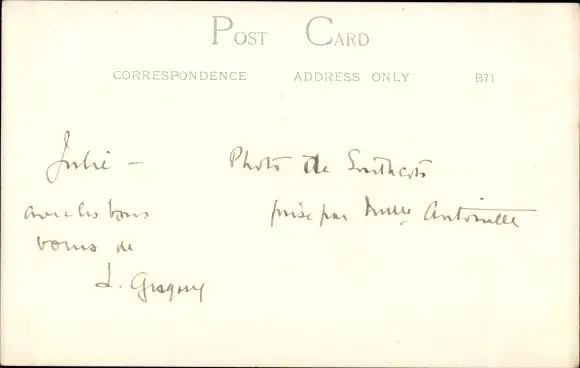 POST CARD
CORRESPONDENCE ADDRESS ONLY B71
Julie —
avec les bons
voeux de
Photo de Southcots
prise par Mlle Antoinette